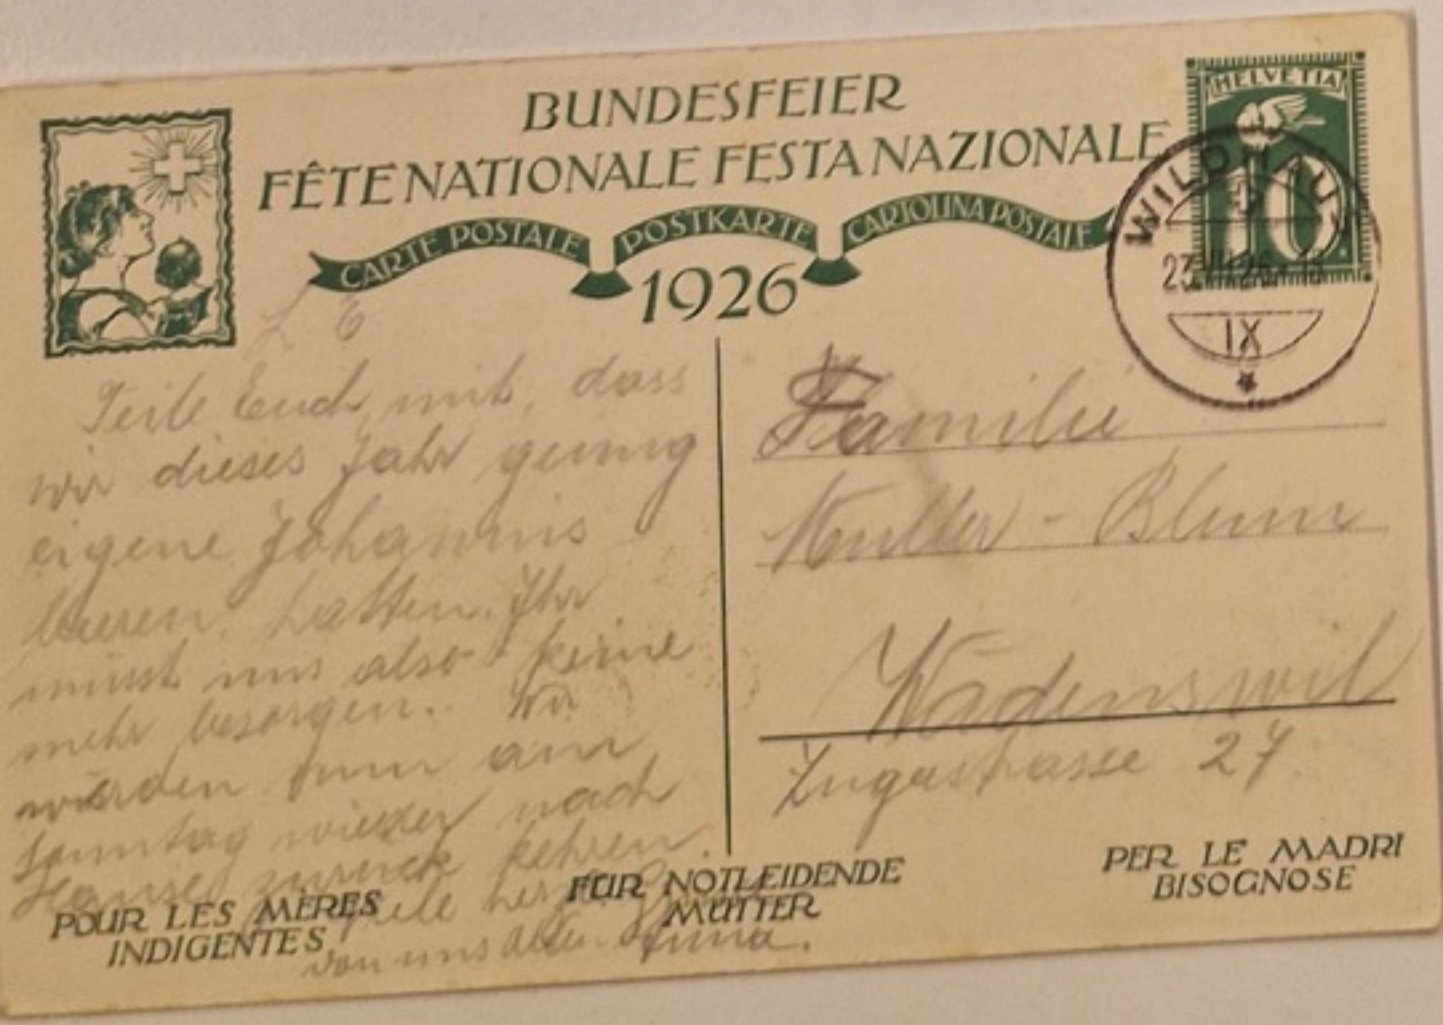 BUNDESFEIER
FÊTE NATIONALE FESTA NAZIONALE
CARTE POSTALE POSTKARTE CARTOLINA POSTALE
1926
HELVETIA
10
WILDHAUS
IX
L E
Teile Euch mit, dass
wir dieses Jahr genug
eigene Johannis
beeren hatten. Ihr
müsst uns also keine
mehr besorgen. Wir
würden nun am
Sonntag wieder nach
Hause zurück kehren.
Viele herzl.
von uns allen Anna.
Familie
- Blum
Wädenswil
Zugerstrasse 27
POUR LES MÈRES
INDIGENTES
FÜR NOTLEIDENDE
MÜTTER
PER LE MADRI
BISOGNOSE